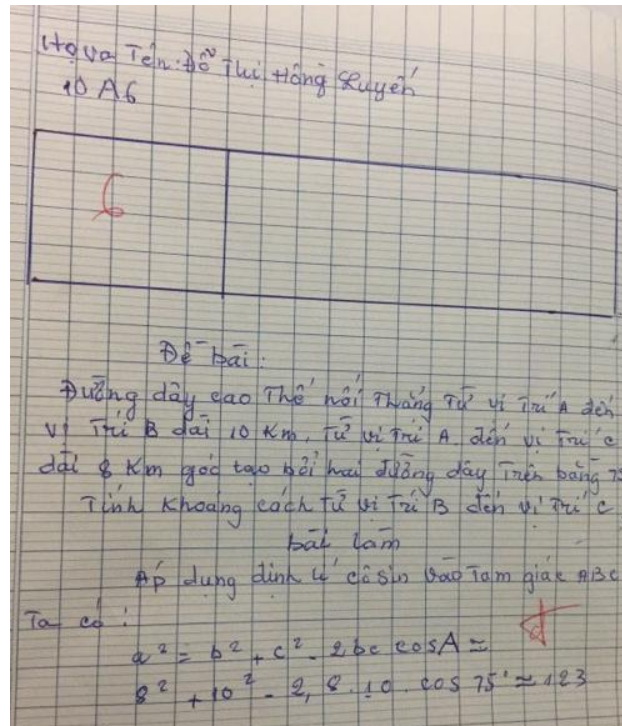 Họ và Tên: Đỗ Thị Hồng Luyến
10 A6
6
Đề bài:
Đường dây cao Thế nối Thẳng Từ vị Trí A đến
vị Trí B dài 10 Km, Từ vị Trí A đến vị Trí C
dài 8 Km góc tạo bởi hai đường dây Trên bằng 75
Tính Khoảng cách Từ vị Trí B đến vị Trí C
bài làm
Áp dụng định lí côsin vào Tam giác ABC
Ta có:
a² = b² + c² - 2bc cosA ≈
8² + 10² - 2, 8 . 10 . cos 75° ≈ 123